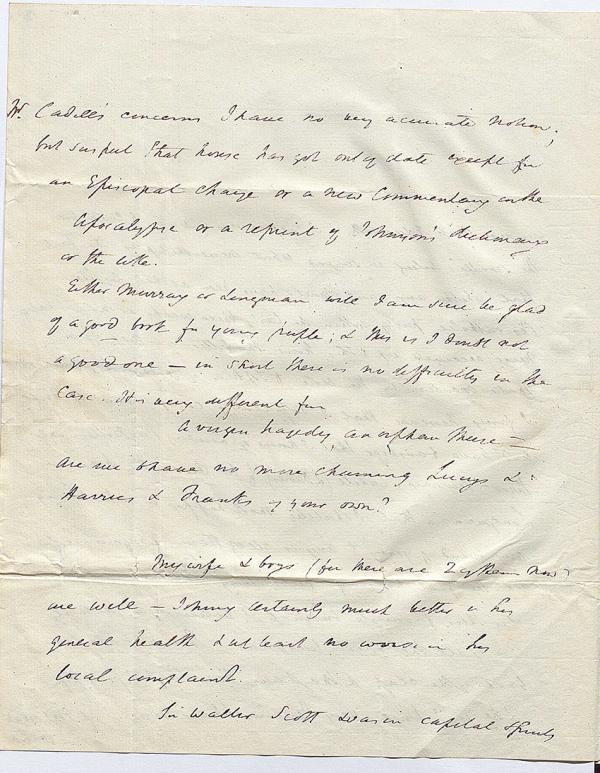 W. Cadell's concerns I have no very accurate notion,
but suspect that house has got out of date except for
an Episcopal charge or a new Commentary on the
Apocalypse or a reprint of Johnson's dictionary
or the like.
Either Murray or Longman will I am sure be glad
of a good book for young people; & this is I doubt not
a good one — in short there is no difficulty in the
case. It is very different for
A virgin tragedy, an orphan Muse —
Are we to have no more charming Lucys &
Harries & Franks of your own?
My wife & boys (for there are 2 of them now)
are well — Johnny certainly much better in his
general health & at least no worse in his
local complaint.
Sir Walter Scott was in capital spirits